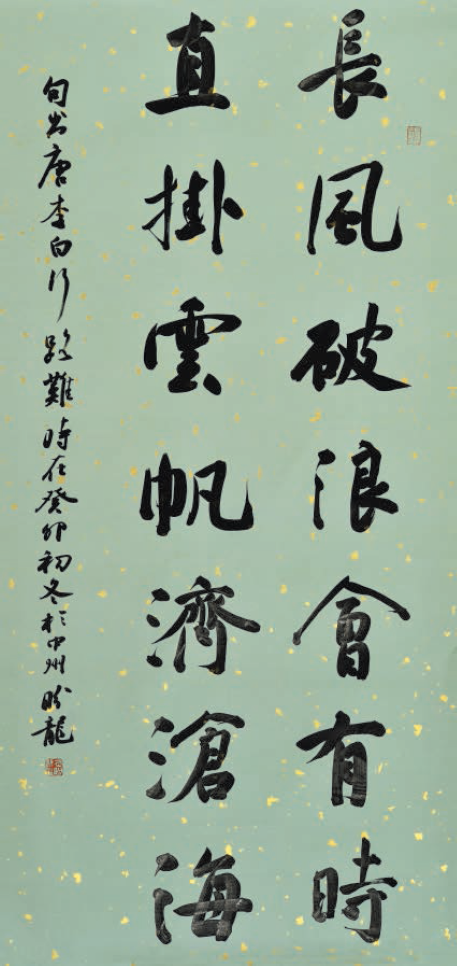 長風破浪會有時
直掛雲帆濟滄海
句出唐李白行路難時在癸卯初冬於中州 龍